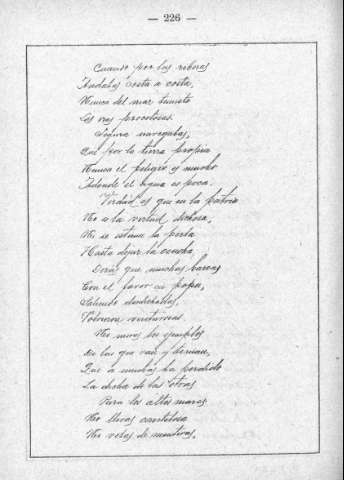 — 226 —
Cuando por las riberas
Andabas costa a costa,
Nunca del mar temiste
Las iras procelosas.
Segura navegabas,
Que por la tierra propia
Nunca el peligro es mucho
Adonde el agua es poca.
Verdad es que en la patria
No a la virtud dichosa,
Ni se estima la perla
Hasta dejar la concha.
Dirás que muchas barcas
Con el favor en popa,
Saliendo desdichadas,
Volvieron venturosas.
No mires los ejemplos
de las que van y tornan,
Que a muchas ha perdido
La dicha de las otras
Para los altos mares
No llevas cautelosa
Ni velas de mentiras,